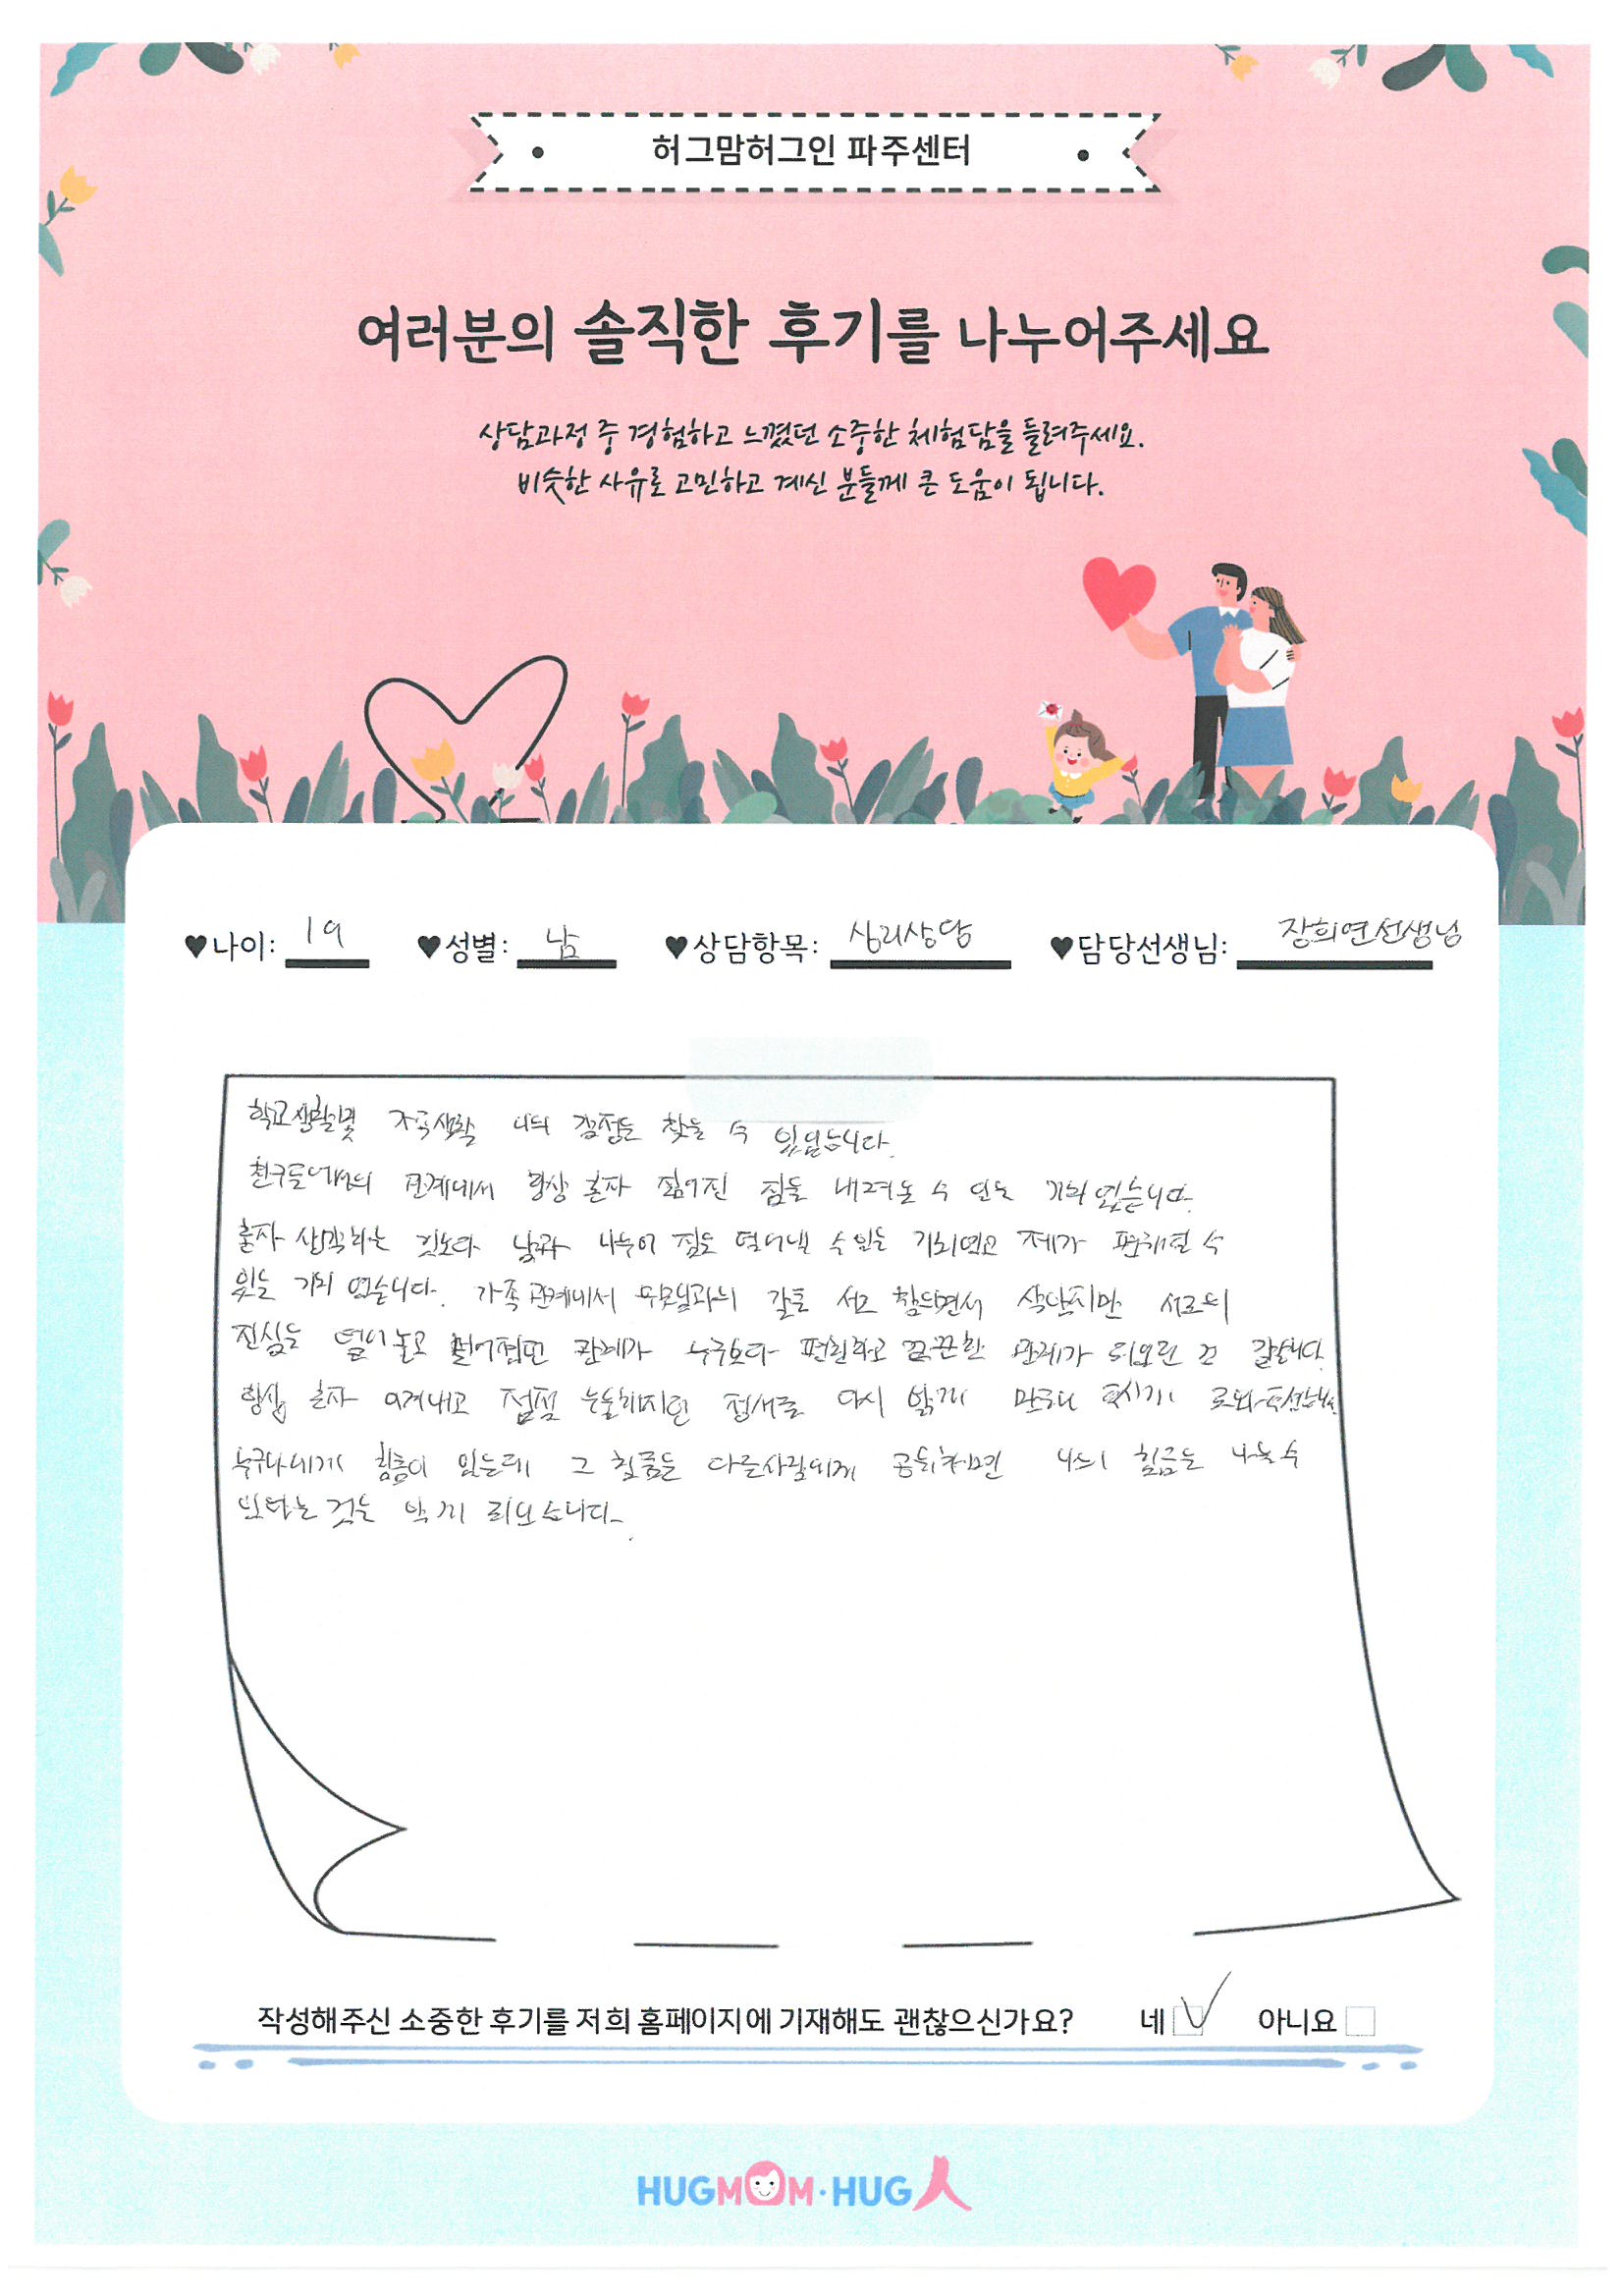 허그맘허그인 파주센터
여러분의 솔직한 후기를 나누어주세요
상담과정 중 경험하고 느꼈던 소중한 체험담을 들려주세요.
비슷한 사유로 고민하고 계신 분들께 큰 도움이 됩니다.
♥나이: 19 ♥성별: 남 ♥상담항목: 심리상담 ♥담당선생님: 장희연선생님
학교생활및 가족생활 나의 감정을 찾을 수 있었습니다.
친구들에서의 관계에서 항상 혼자 짊어진 짐을 내려놓 수 있는 기회였습니다.
혼자 생각하는 것보다 남과 나누어 짐을 덜어낼 수 있는 기회였고 제가 편해질 수
있는 기회 였습니다. 가족 관계에서 부모님과의 갈등 서로 힘들면서 지만 서로의
진심을 털어놓고 관계가 누구보다 편안하고 끈끈한 관계가 되오른 것 같습니다.
항상 혼자 이겨내고 점점 정서를 다시 밝게
누구나에게 힘듦이 있는데 그 힘듦을 다른사람에게 공유하면 나의 힘듦을 나눌 수
있다는 것을 되었습니다.
작성해주신 소중한 후기를 저희 홈페이지에 기재해도 괜찮으신가요? 네 아니요
HUGMOM·HUG人